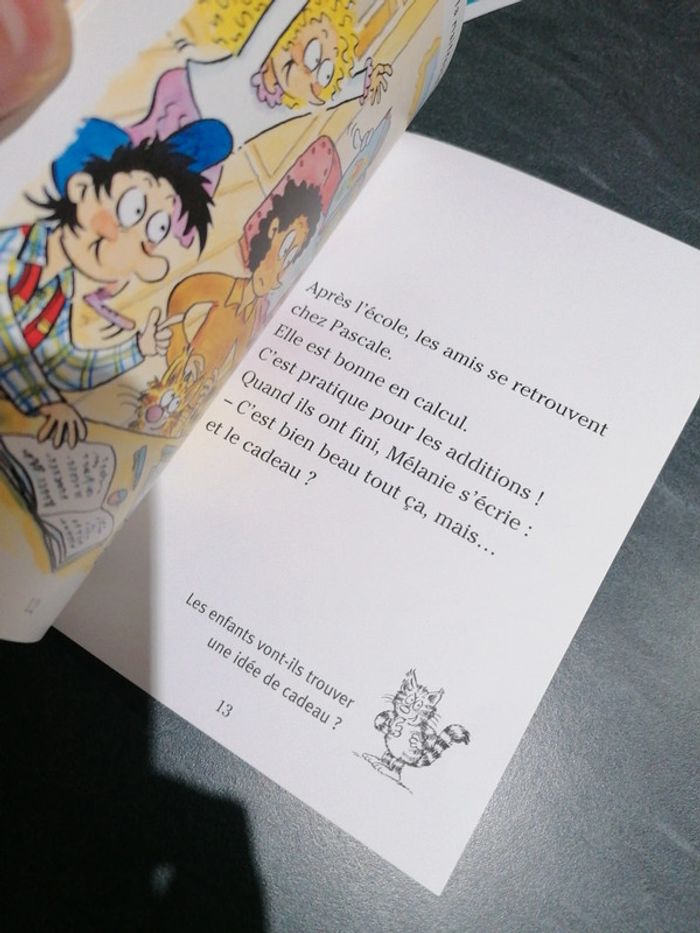 Après l'école, les amis se retrouvent
chez Pascale.
Elle est bonne en calcul.
C'est pratique pour les additions !
Quand ils ont fini, Mélanie s'écrie :
– C'est bien beau tout ça, mais...
et le cadeau ?
Les enfants vont-ils trouver
une idée de cadeau ?
13